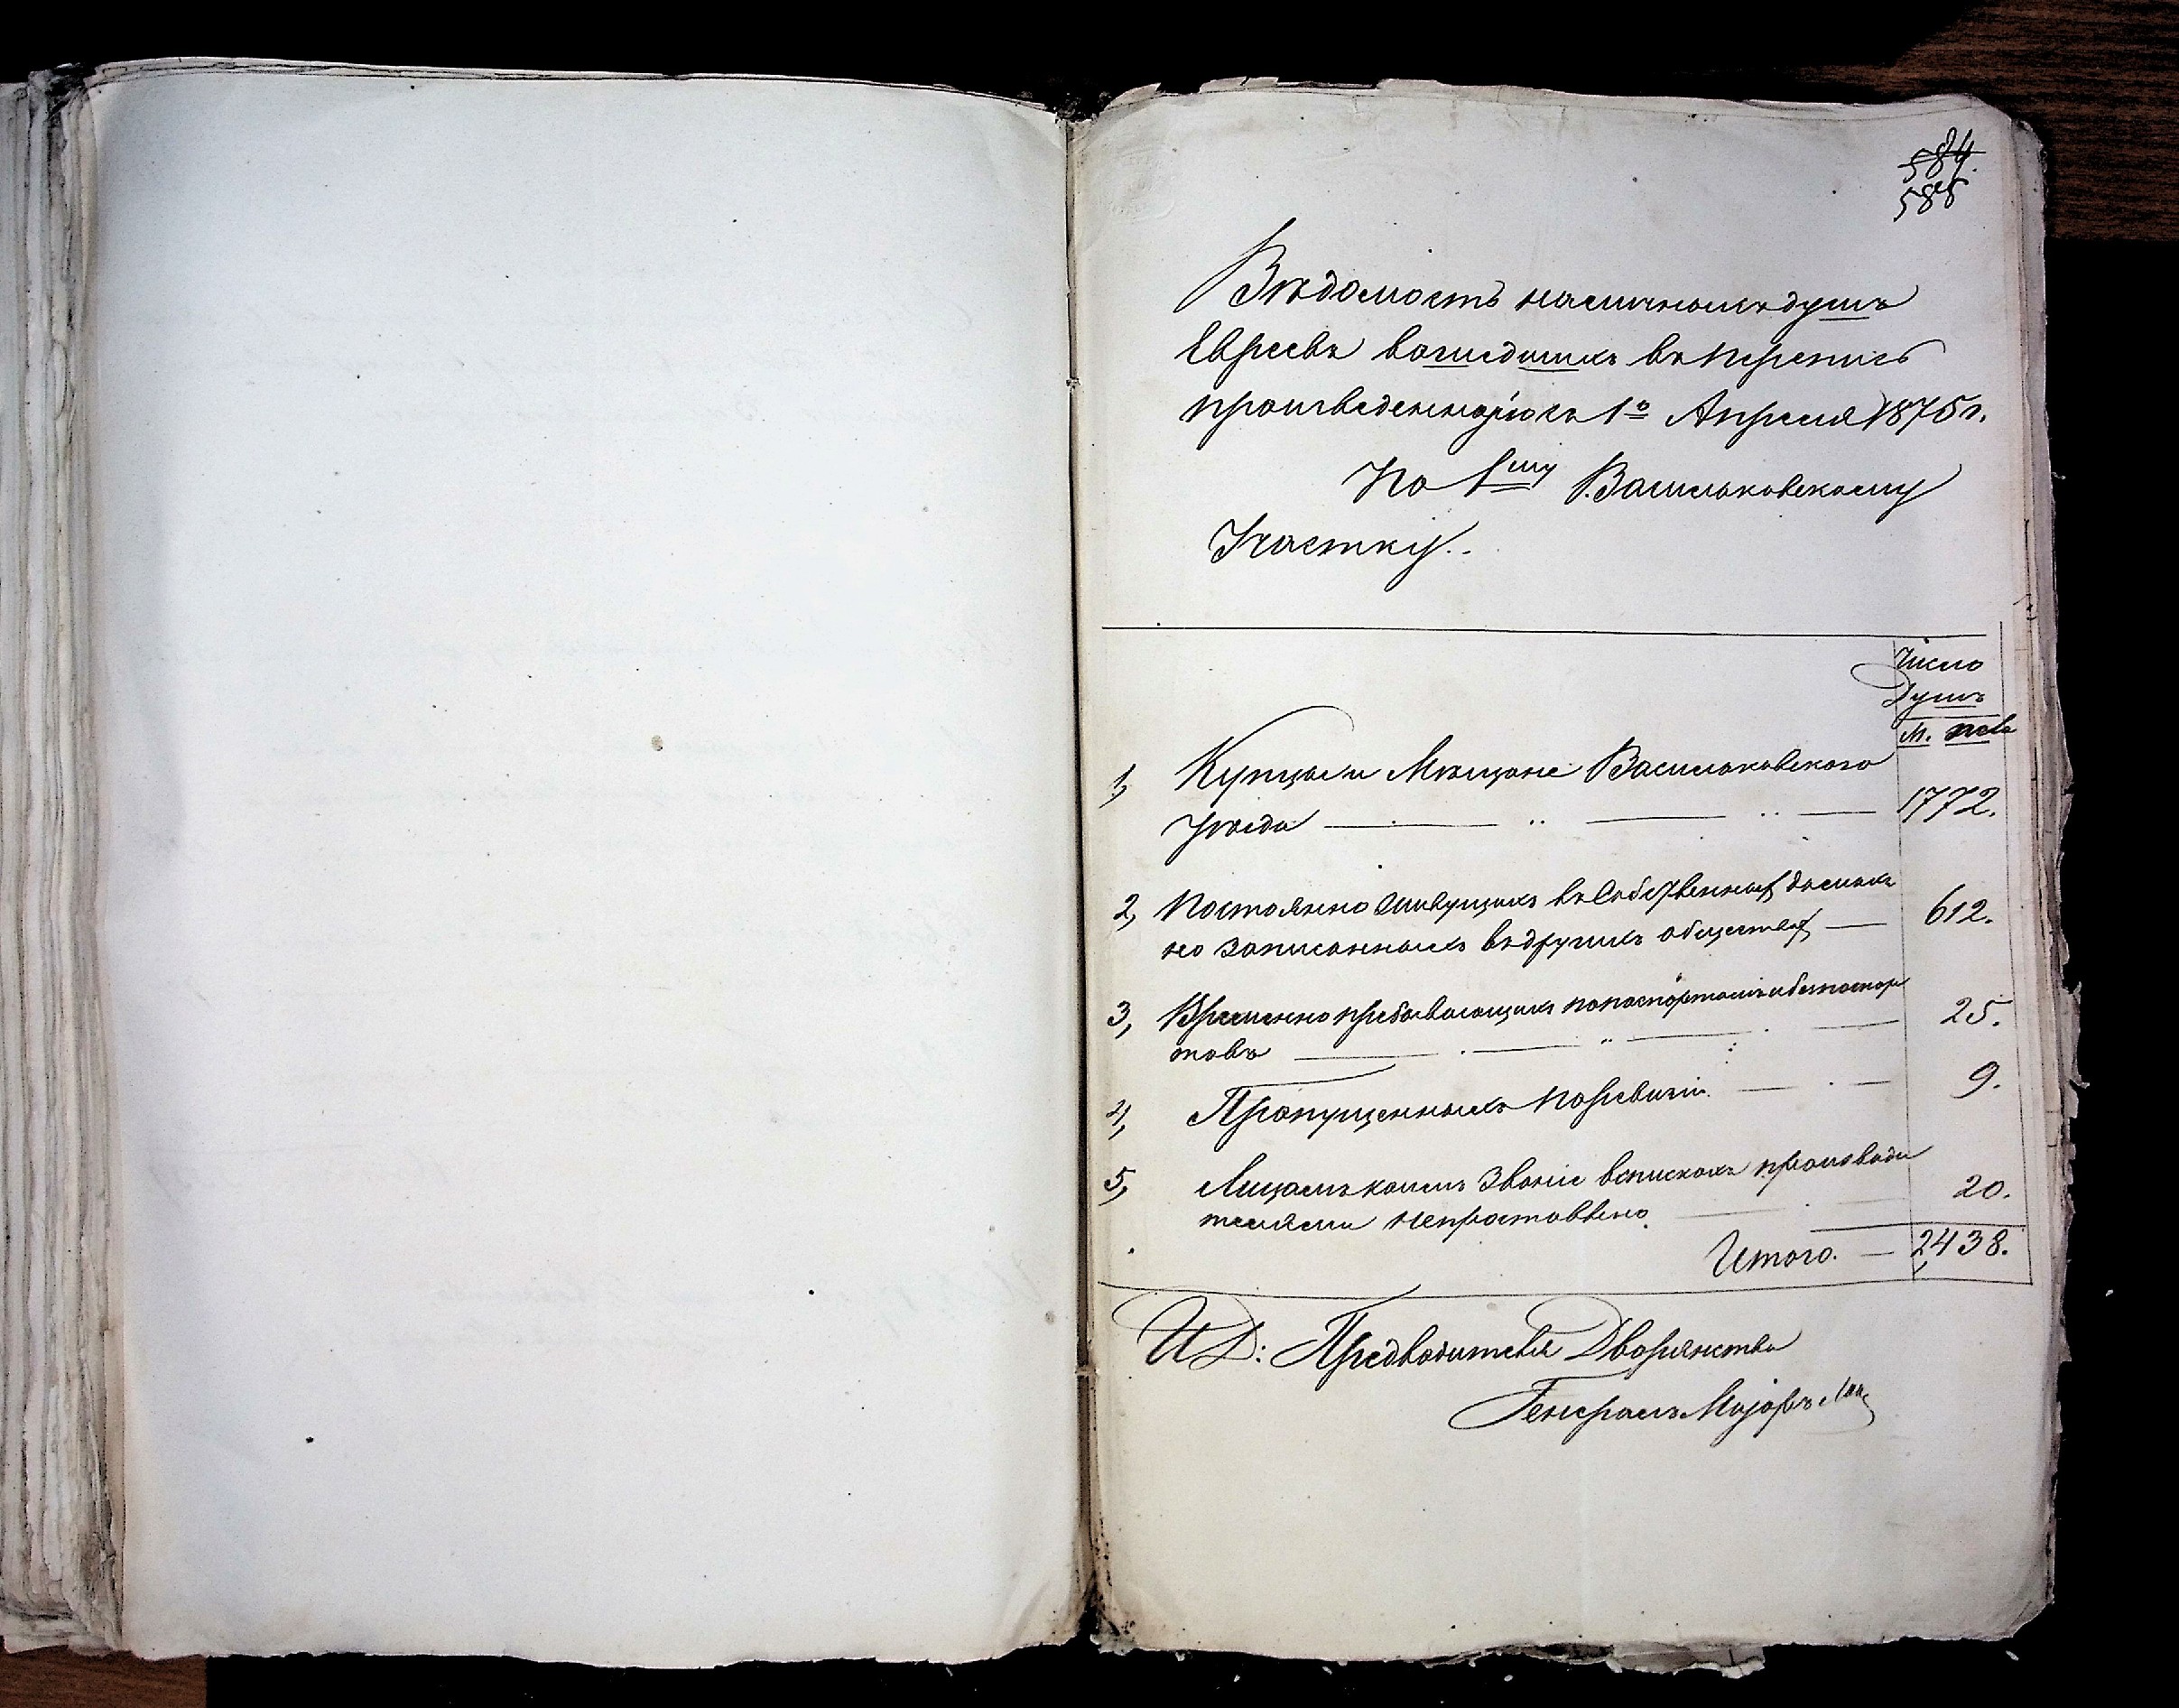 584.
588
Вѣдомость наличныхъ душъ
Евреевъ вошедшихъ въ перепись
произведенную къ 1º Апреля 1875 г.
По 1му Васильковскому
Участку..
Число
Душъ
М. пола
1, Купцы и Мѣщане Васильковского
Уѣзда 1772.
2, Постоянно живущихъ въ Собственных домахъ
но записанныхъ въ других обществах 612.
3, Временно пребывающихъ по паспортамъ и безпаспор
товъ 25.
4, Пропущенныхъ по ревизіи 9.
5, Лицамъ коимъ званіе в спискахъ производи
телями непроставлено. 20.
Итого. — 2,438.
И Д: Предводителя Дворянства
Генералъ Маіоръ